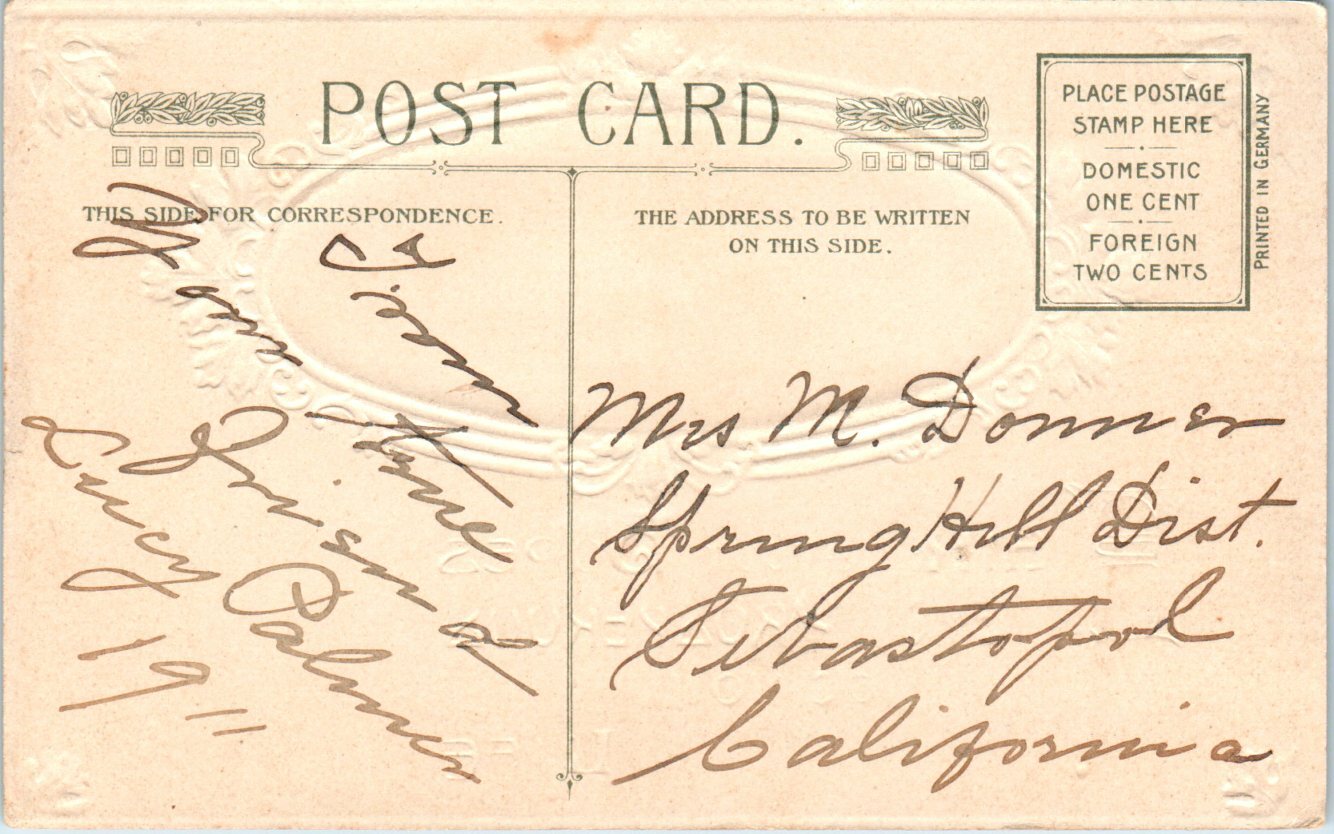 POST CARD.
THIS SIDE FOR CORRESPONDENCE.
THE ADDRESS TO BE WRITTEN
ON THIS SIDE.
PLACE POSTAGE
STAMP HERE
DOMESTIC
ONE CENT
FOREIGN
TWO CENTS
PRINTED IN GERMANY
From
Your true
Friend
Lucy Palmer
1911
Mrs M. Donner
Spring Hill Dist.
Sebastopol
California